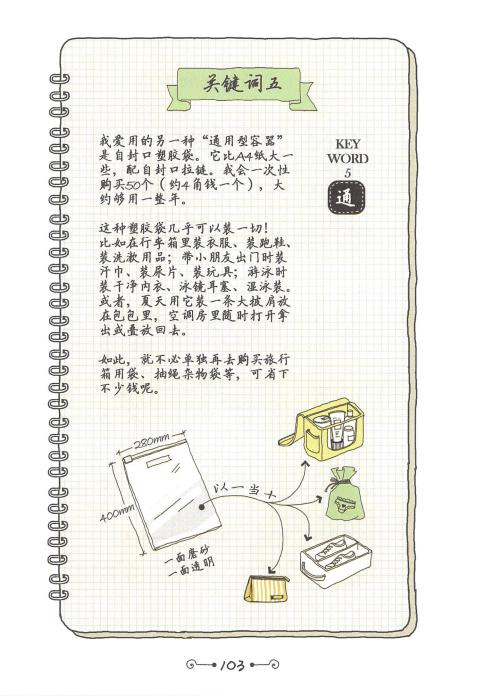 关键词五
我爱用的另一种“通用型容器”
是自封口塑胶袋。它比A4纸大一
些，配自封口拉链。我会一次性
购买50个（约4角钱一个），大
约够用一整年。
KEY
WORD
5
通
这种塑胶袋几乎可以装一切！
比如在行车箱里装衣服、装跑鞋、
装洗漱用品；带小朋友出门时装
汗巾、装尿片、装玩具；游泳时
装干净内衣、泳镜耳塞、湿泳装。
或者，夏天用它装一条大披肩放
在包包里，空调房里随时打开拿
出或叠放回去。
如此，就不必单独再去购买旅行
箱用袋、抽绳杂物袋等，可省下
不少钱呢。
280mm
400mm
以一当十
一面磨砂
一面透明
103